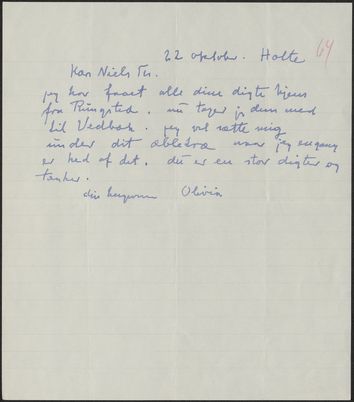 22 oktober. Holte 64
Kære Niels Th.
jeg har faaet alle dine digte hjem
fra Ringsted. nu tager jeg dem med
til Vedbæk. jeg vil sætte mig
under dit æbletræ naar jeg engang
er ked af det. du er en stor digter og
tænker.
din Olivia